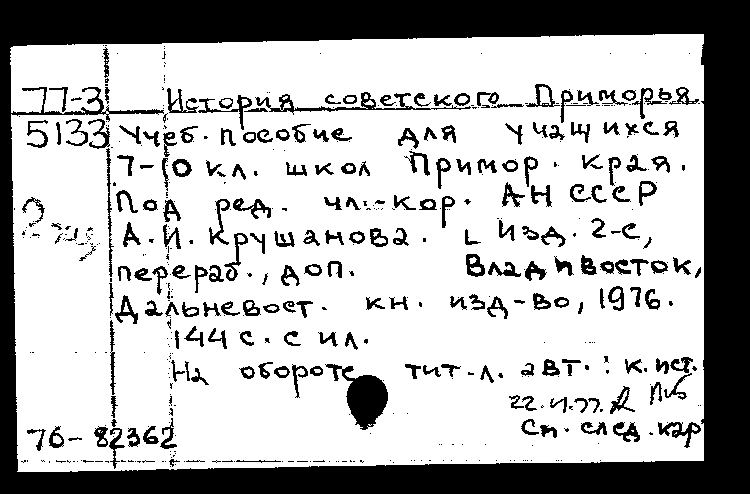 77-3 История советского Приморья.
5133 Учеб. пособие для учащихся
7-10 кл. школ Примор. края.
Под ред. чл.-кор. АН СССР
2 экз А.И. Крушанова. Изд. 2-е,
перераб., доп. Владивосток,
Дальневост. кн. изд-во, 1976.
144 с. с ил.
На обороте тит. л. авт.: к. ист.
76-82362 См. след. кар